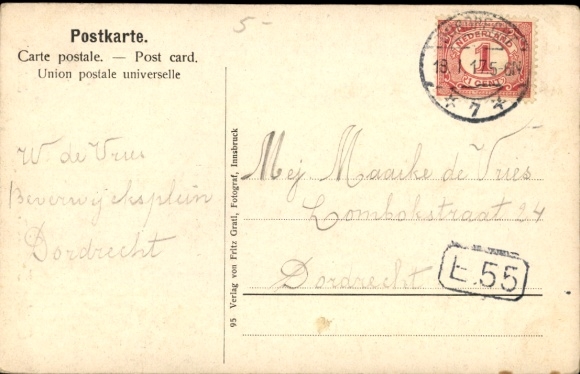 5-
Postkarte.
Carte postale. — Post card.
Union postale universelle
NEDERLAND
1
1 CENT
18 17 5-6N
7
W. de Vries
Beverwijcksplein
Dordrecht
95 Verlag von Fritz Gratl, Fotograf, Innsbruck
Mej Maaike de Vries
Lombokstraat 24
Dordrecht
E.55